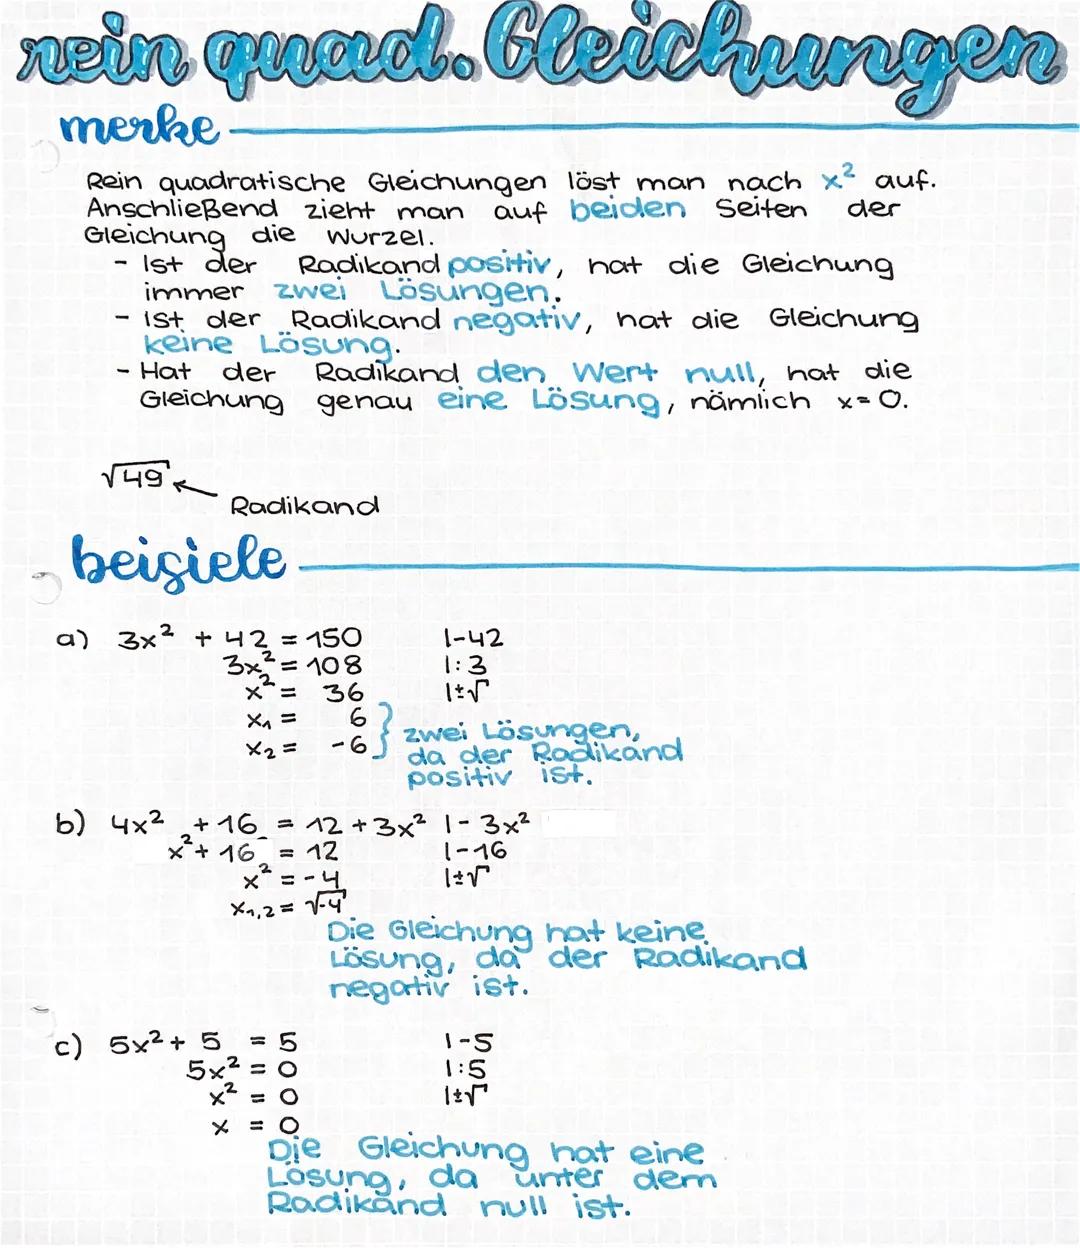 rein quad. Gleichungen
merke
Rein quadratische Gleichungen löst man nach x² auf.
Anschließend zieht man auf beiden Seiten der
Gleichung die Wurzel.
- Ist der Radikand positiv, hat die Gleichung
immer zwei Lösungen.
- Ist der Radikand negativ, hat die Gleichung
keine Lösung.
- Hat der Radikand den Wert null, hat die
Gleichung genau eine Lösung, nämlich x = 0.
√49
Radikand
beisiele
a) 3x² + 42 = 150 |-42
3x² = 108 |:3
x² = 36 |±√
x₁ = 6
x₂ = -6
zwei Lösungen,
da der Radikand
positiv ist.
b) 4x² + 16 = 12 + 3x² |- 3x²
x² + 16 = 12 |-16
x² = -4 |±√
x₁,₂ = √-4
Die Gleichung hat keine
Lösung, da der Radikand
negativ ist.
c) 5x² + 5 = 5 |-5
5x² = 0 |:5
x² = 0 |±√
x = 0
Die Gleichung hat eine
Lösung, da unter dem
Radikand null ist.